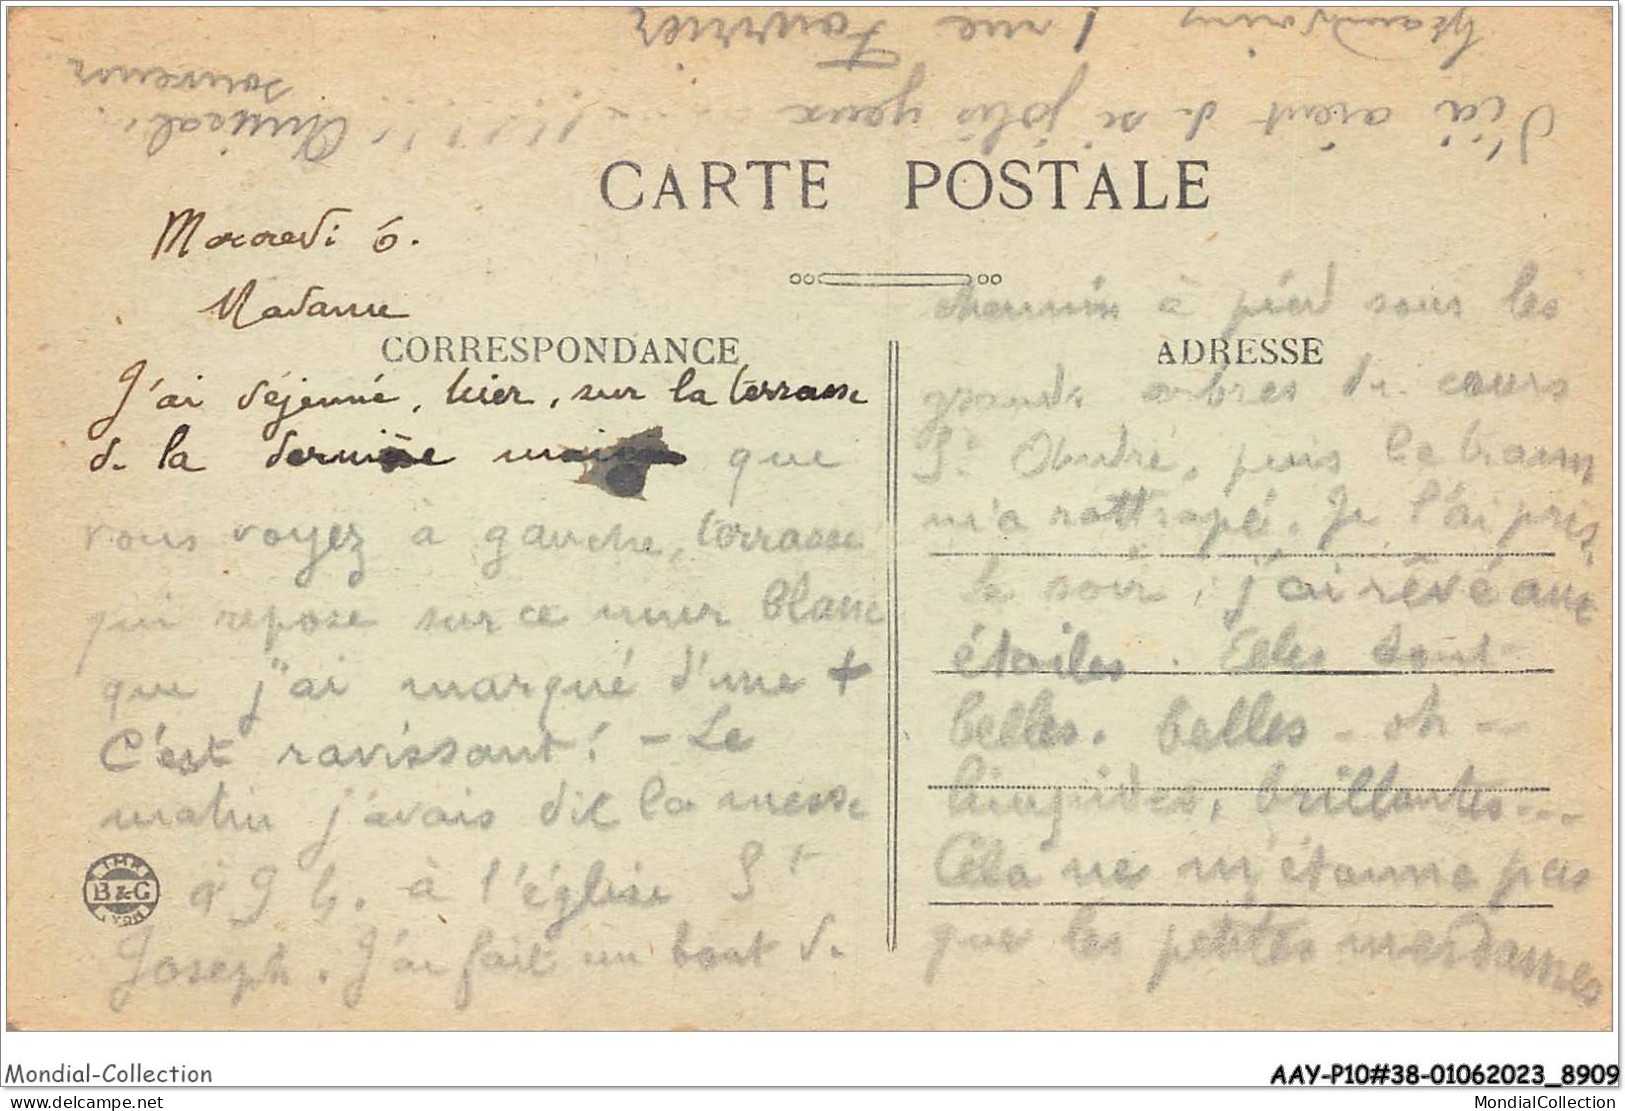 CARTE POSTALE
Mercredi 6.
Madame
CORRESPONDANCE
J'ai déjeuné, hier, sur la terrasse
de la dernière que
vous voyez à gauche, terrasse
qui repose sur ce mur blanc
que j'ai marqué d'une +
C'est ravissant! - Le
matin j'avais dit la messe
à 9 h. à l'église St
Joseph. J'ai fait un bout de
ADRESSE
chemin à pied sous les
grands arbres du cours
St André, puis le tram
m'a rattrapé. Je l'ai pris.
Le soir, j'ai rêvé aux
étoiles. Elles sont
belles. belles - oh --
limpides, brillantes ---
Cela ne m'étonne pas
que les petites
d'ici aient de si jolis yeux
Amical
souvenir
1 rue Fourier
IMP.
B&G
LYON
Mondial-Collection
AAY-P10#38-01062023_8909
delcampe.net
MondialCollection